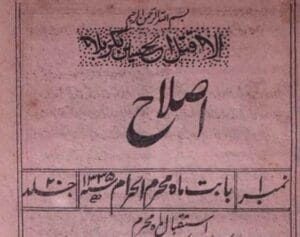 بسم اللہ الرحمن الرحیم
الا قتل الحسین بکربلا
اصلاح
نمبر ۱ بابت ماہ محرم الحرام ۱۳۳۵ھ جلد ۲۰
استقبال ماہ محرم